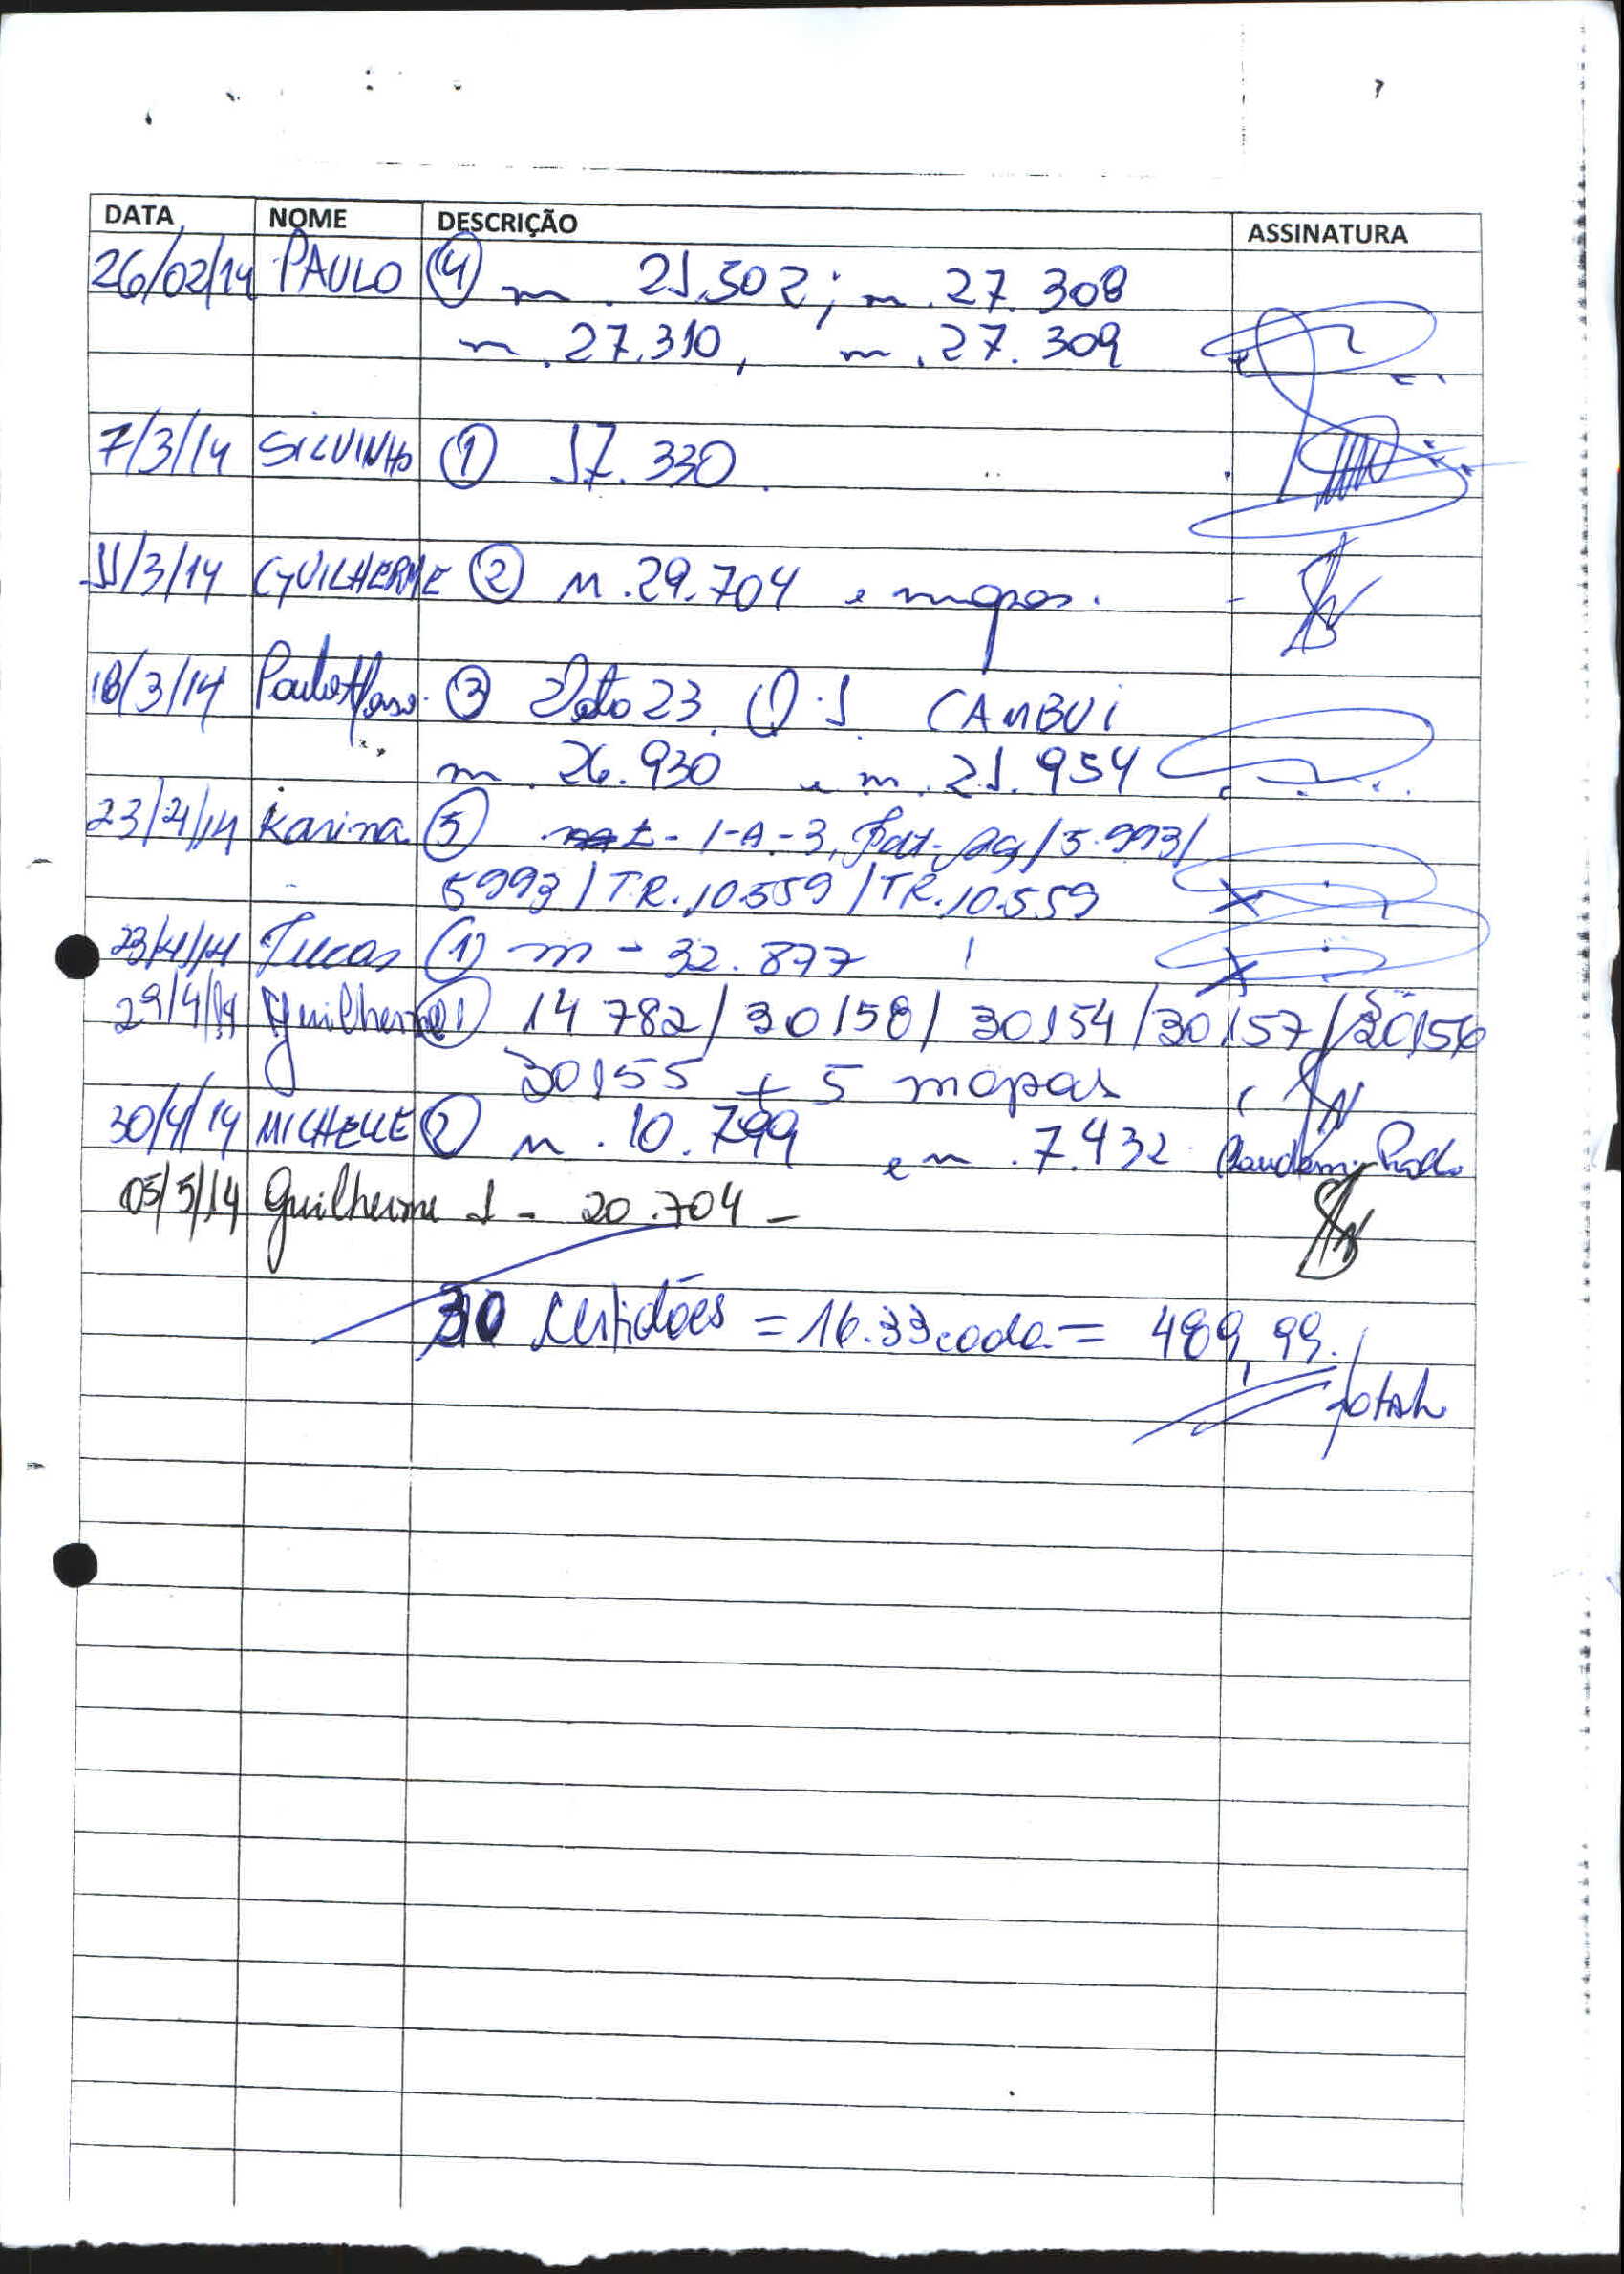 DATA NOME DESCRIÇÃO ASSINATURA
26/02/14 PAULO (4) m. 21.502; m. 27.308
m. 27.310, m. 27.309
7/3/14 SILVINHO (1) 17.330.
11/3/14 GUILHERME (2) M. 29.704 e mapas.
18/3/14 Paulo (3) 23 Q. 1 CAMBUI
m. 26.930 e m. 21.954
23/4/14 Karina (5) - 1-A-3, /5.993/
5993/TR.10.559/TR.10.559
23/4/14 Lucas (1) m - 32.877
29/4/14 Guilherme 14 782/30158/30154/30157/30156
30155 + 5 mapas
30/4/14 MICHELLE (2) m. 10.799 e m. 7.432
05/5/14 Guilherme 1 - 20.704 -
30 certidões = 16.33 cada = 489,99.
total